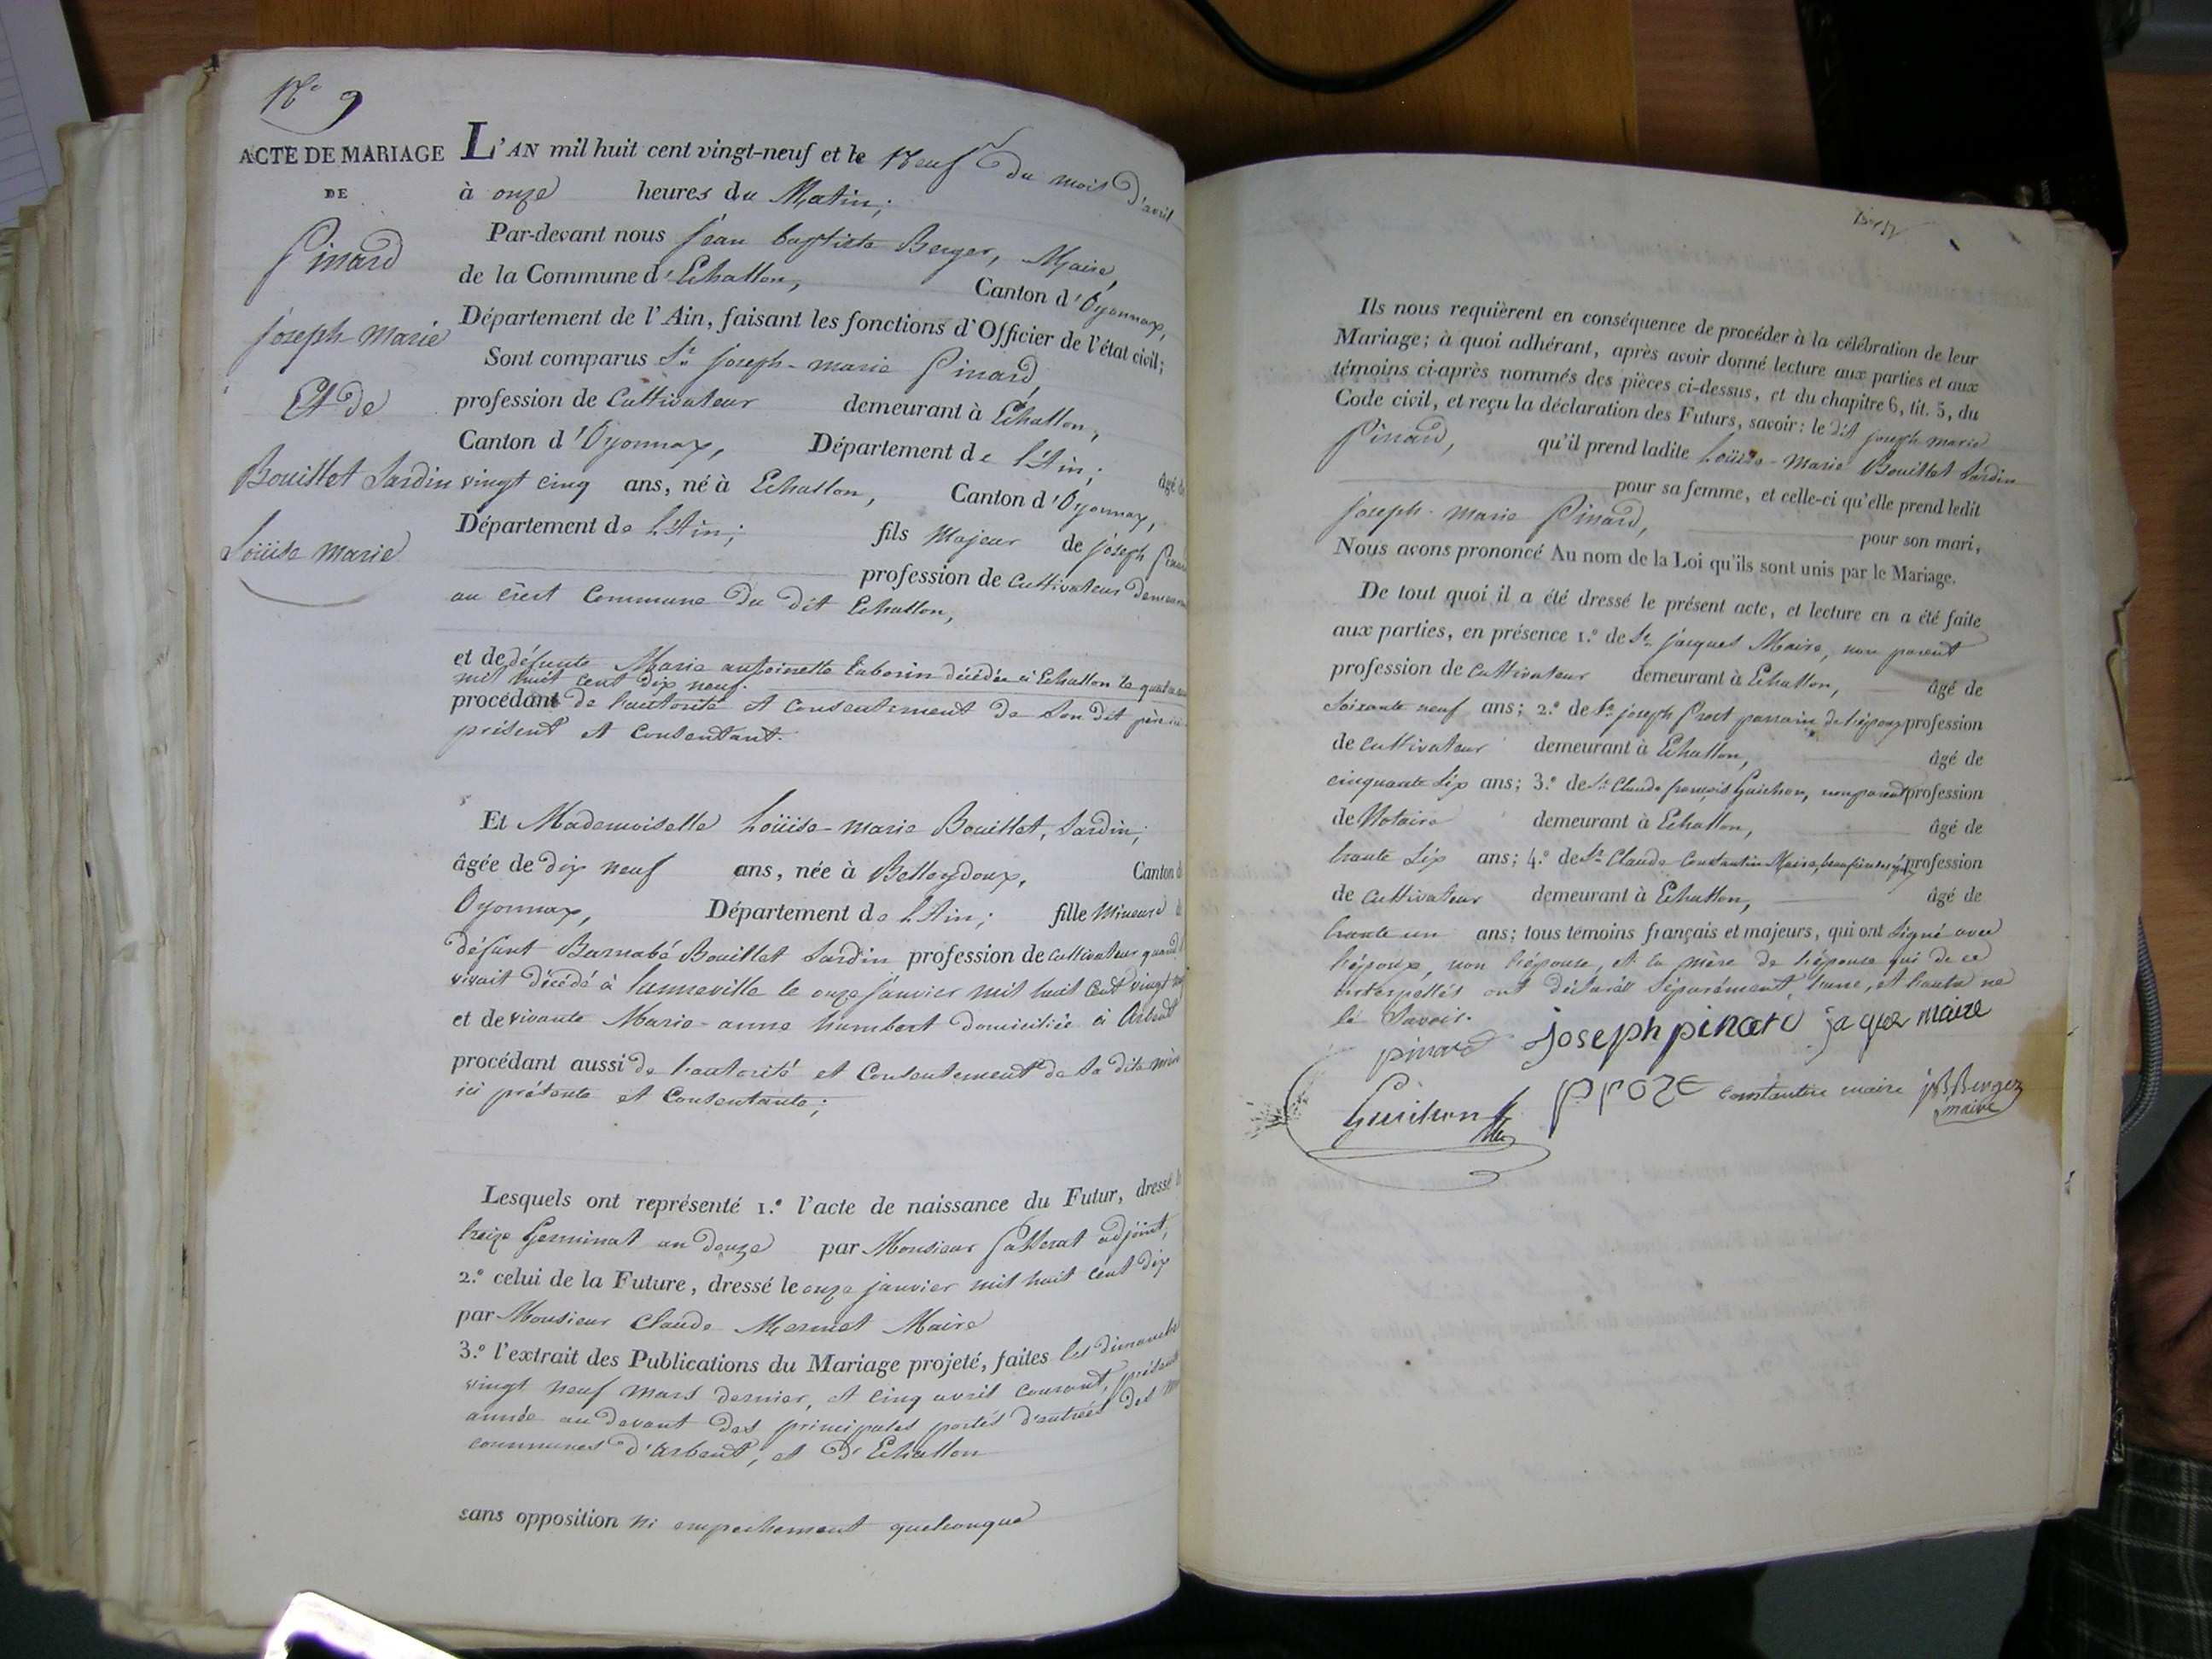 N.º 9
ACTE DE MARIAGE
DE
Pinard
Joseph-Marie
Et de
Bouillet Jardin
Loüise Marie
L'AN mil huit cent vingt-neuf et le Neuf du mois d'avril
à onze heures du Matin;
Par-devant nous Jean baptiste Berger, Maire,
de la Commune d'Echallon, Canton d'Oyonnax,
Département de l'Ain, faisant les fonctions d'Officier de l'état civil;
Sont comparus Sr. Joseph-marie Pinard,
profession de Cultivateur demeurant à Echallon,
Canton d'Oyonnax, Département de l'Ain; âgé de
vingt cinq ans, né à Echallon, Canton d'Oyonnax,
Département de l'Ain; fils Majeur de joseph Pinard
profession de Cultivateur
au crêt Commune du dit Echallon,
et de défunte Marie antoinette décédée à Echallon le
mil huit cent dix neuf.
procédant de l'autorité et consentement de son dit père ici
présent et Consentant.
Et Mademoiselle Loüise-marie Bouillet, Jardin;
âgée de dix neuf ans, née à Belleydoux, Canton d
Oyonnax, Département de l'Ain; fille Mineure de
défunt Barnabé Bouillet Jardin profession de cultivateur quand il
vivait décédé à le onze Janvier mil huit Cent vingt
et de vivante Marie-anne humbert domiciliée à Arbent
procédant aussi de l'autorité et Consentement de Sa dite mère
ici présente et Consentante;
Lesquels ont représenté 1.º l'acte de naissance du Futur, dressé le
treize Germinal an douze par Monsieur adjoint;
2.º celui de la Future, dressé le onze janvier mil huit cent dix
par Monsieur Claude Mermet Maire
3.º l'extrait des Publications du Mariage projeté, faites les dimanches
vingt neuf mars dernier, et cinq avril courant, présente
année au devant des principales portes d'entrées des
communes d'Arbent, et d'Echallon
sans opposition ni empechement quelconque
Ils nous requièrent en conséquence de procéder à la célébration de leur
Mariage; à quoi adhérant, après avoir donné lecture aux parties et aux
témoins ci-après nommés des pièces ci-dessus, et du chapitre 6, tit. 5, du
Code civil, et reçu la déclaration des Futurs, savoir: le dit joseph marie
Pinard, qu'il prend ladite Loüise-marie Bouillet Jardin
pour sa femme, et celle-ci qu'elle prend ledit
joseph-marie Pinard, pour son mari,
Nous avons prononcé Au nom de la Loi qu'ils sont unis par le Mariage.
De tout quoi il a été dressé le présent acte, et lecture en a été faite
aux parties, en présence 1.º de Sr. jacques Maire, non parent
profession de cultivateur demeurant à Echallon, âgé de
soixante neuf ans; 2.º de Sr. joseph Prost parrain de l'époux profession
de cultivateur demeurant à Echallon, âgé de
cinquante six ans; 3.º de Sr. Claude françois Guichon, non parent profession
de Notaire demeurant à Echallon, âgé de
trente six ans; 4.º de Sr. Claude Constantin Maire, profession
de cultivateur demeurant à Echallon, âgé de
trente un ans; tous témoins français et majeurs, qui ont signé avec
l'époux, non l'épouse, et la mère de l'épouse qui de ce
interpellés ont déclaré séparément l'une, et l'autre ne
le Savoir.
pinard joseph pinard jaques maire
Guichon constantin maire JBBerger
maire